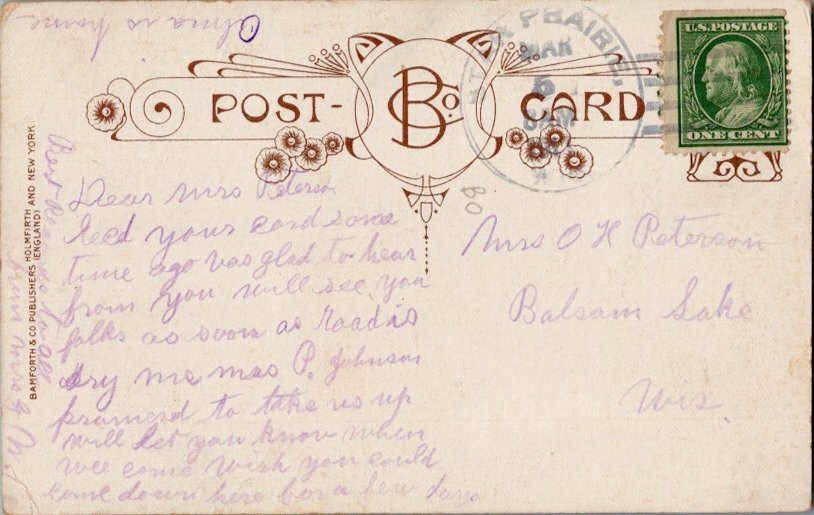 Alma is home
POST-
B Co
CARD
PRAIRIE,
MAR
5
U.S. POSTAGE
ONE CENT
BAMFORTH & CO. PUBLISHERS HOLMFIRTH AND NEW YORK
(ENGLAND)
Dear Mrs Peterson
Recd your card some
time ago was glad to hear
from you will see you
folks as soon as Road is
dry Mrs P. Johnson
promased to take us up
will let you know when
wee come wish you could
come down here for a few days
from Mrs
Mrs O H Peterson
Balsam Lake
Wis
60